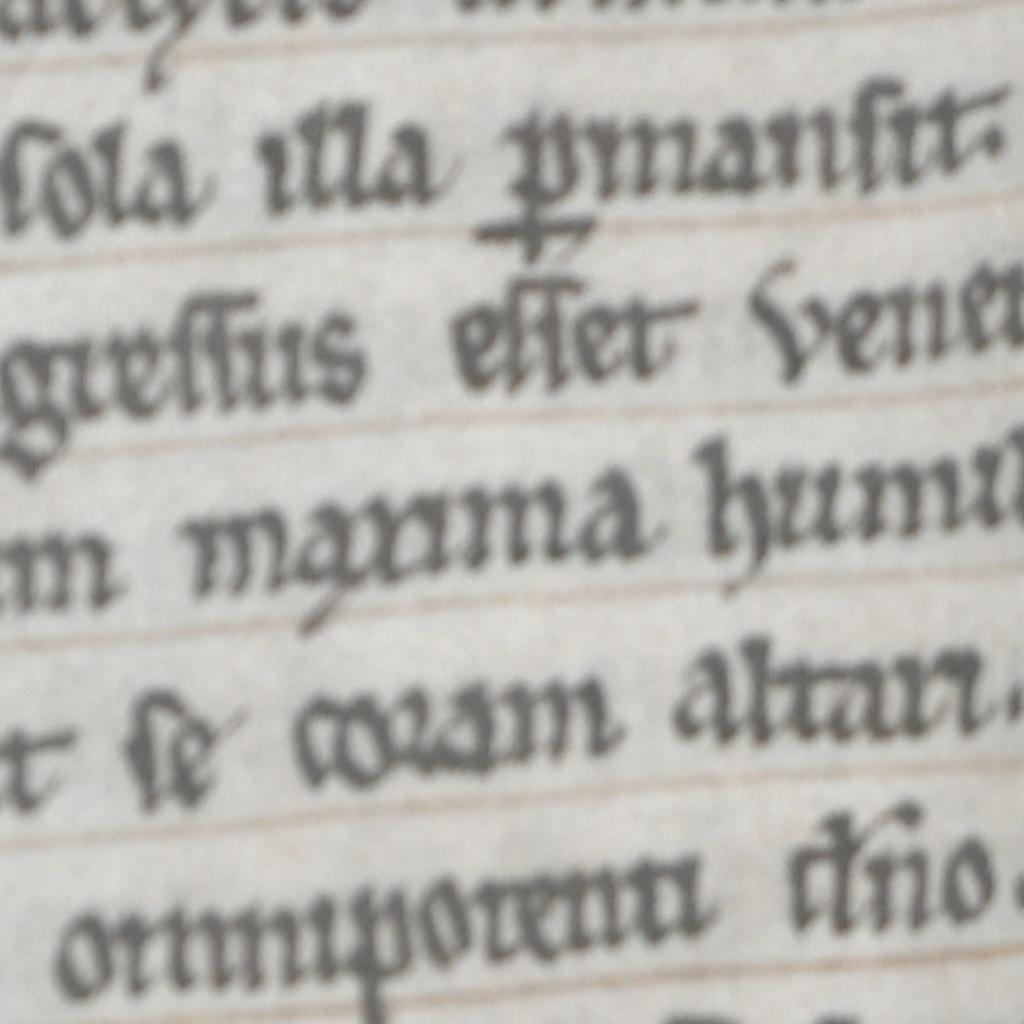 ſola illa ꝑmanſit.
greſſus eſſet vene
m maxima humil
t ſe coꝛam altari.
omnipotenti dño.